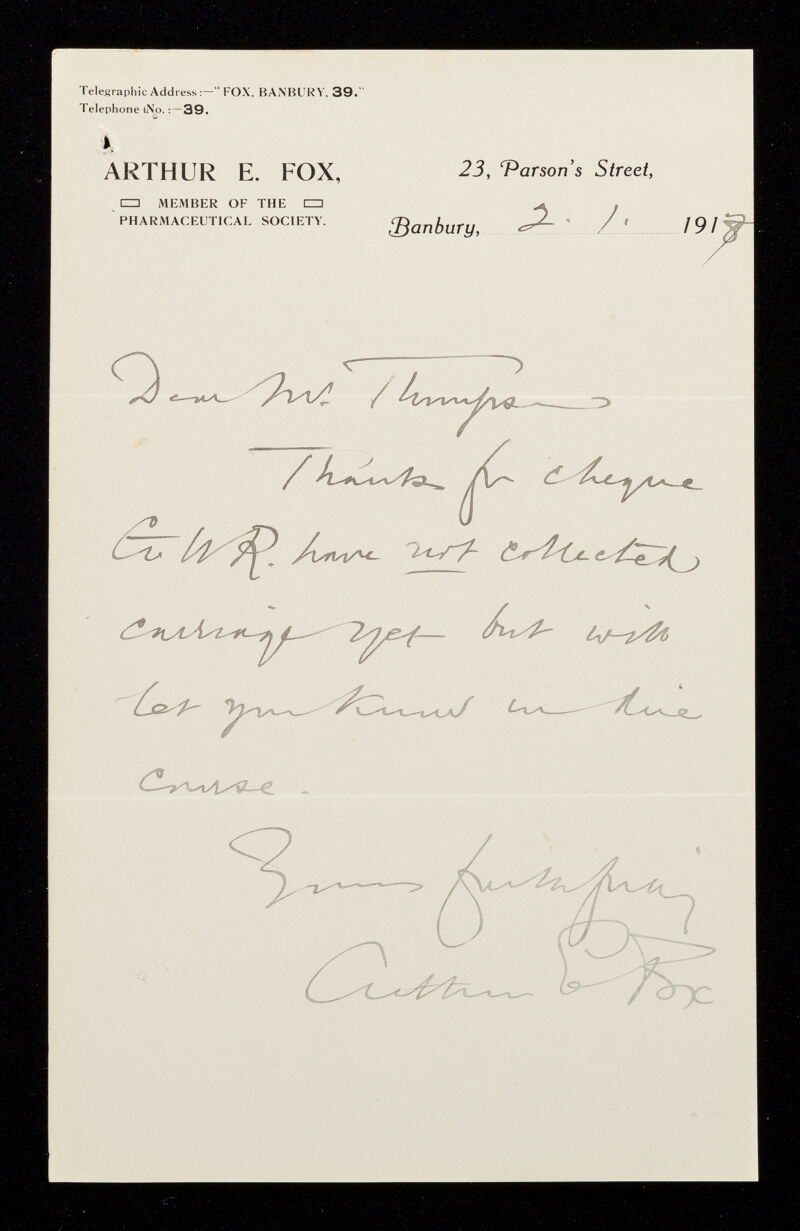 Telegraphic Address:—"FOX, BANBURY, 39."
Telephone No.:—39.
ARTHUR E. FOX,
MEMBER OF THE
PHARMACEUTICAL SOCIETY.
23, Parson's Street,
Banbury, 2. 1. 1918
Dear Mr. Thompson
Thanks for cheque
G W R. have not collected
carriage yet but will
let you know in due
course.
Yours faithfully
Arthur E Fox